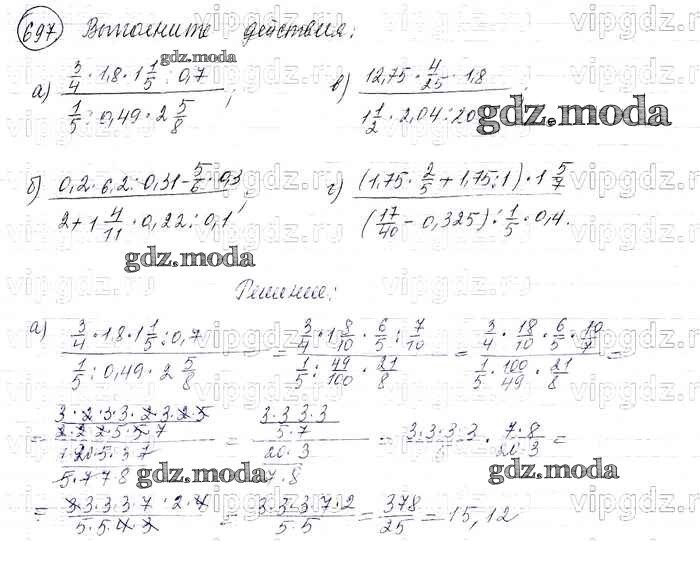 697 Выполните действия:
а) (3/4 · 1,8 · 1 1/5 : 0,7) / (1/5 : 0,49 · 2 5/8);
в) (12,75 · 4/25 · 1,8) / (1 1/2 · 2,04 : 20
б) (0,2 · 6,2 : 0,31 - 5/6 · 0,3) / (2 + 1 4/11 · 0,22 : 0,1);
г) ((1,75 · 2/5 + 1,75 : 1) · 1 5/7) / ((17/40 - 0,325) : 1/5 · 0,4.
gdz.moda
Решения:
а) (3/4 · 1,8 · 1 1/5 : 0,7) / (1/5 : 0,49 · 2 5/8) = (3/4 · 1 8/10 · 6/5 : 7/10) / (1/5 : 49/100 · 21/8) = (3/4 · 18/10 · 6/5 · 10/7) / (1/5 · 100/49 · 21/8) =
= (3·2·3·3·2·3·2·5 / 2·2·2·5·5·7) / (1·20·5·3·7 / 5·7·7·8) = (3·3·3·3 / 5·7) / (20·3 / 7·8) = 3·3·3·3/5 · 7·8/20·3 =
= 3·3·3·3·7·2·4 / 5·5·4·3 = 3·3·3·7·2 / 5·5 = 378/25 = 15,12
gdz.moda
vipgdz.ru